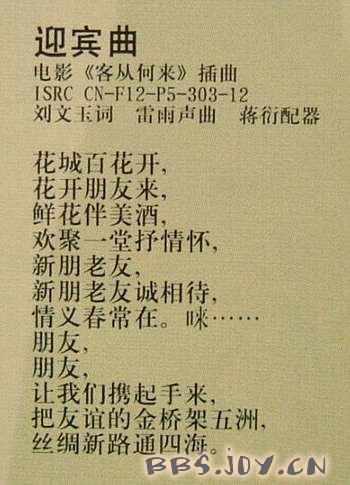 迎宾曲
电影《客从何来》插曲
ISRC CN-F12-P5-303-12
刘文玉词 雷雨声曲 蒋衍配器
花城百花开,
花开朋友来,
鲜花伴美酒,
欢聚一堂抒情怀,
新朋老友,
新朋老友诚相待,
情义春常在。唻……
朋友,
朋友,
让我们携起手来,
把友谊的金桥架五洲,
丝绸新路通四海。
BBS.JOY.CN